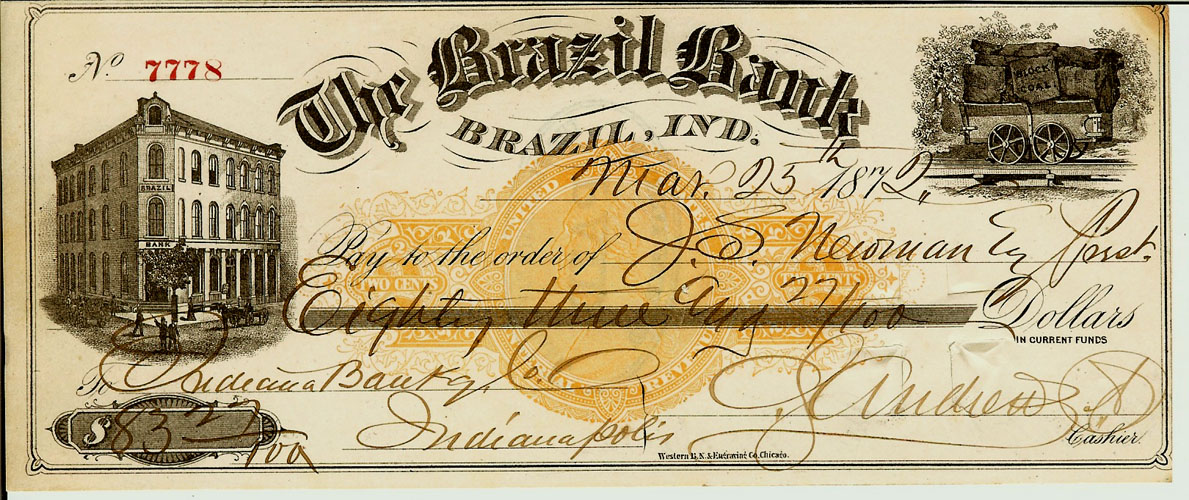 No. 7778
The Brazil Bank
BRAZIL, IND.
BLOCK COAL
BRAZIL
BANK
Mar. 25th 1872,
UNITED STATES
Pay to the order of J. S. Newman Eq Prest.
TWO CENTS
Eighty three and 27/100 Dollars
IN CURRENT FUNDS
To Indiana Bankg Co.
$83 27/100
Indianapolis
Cashier.
Western B.N. & Engraving Co. Chicago.